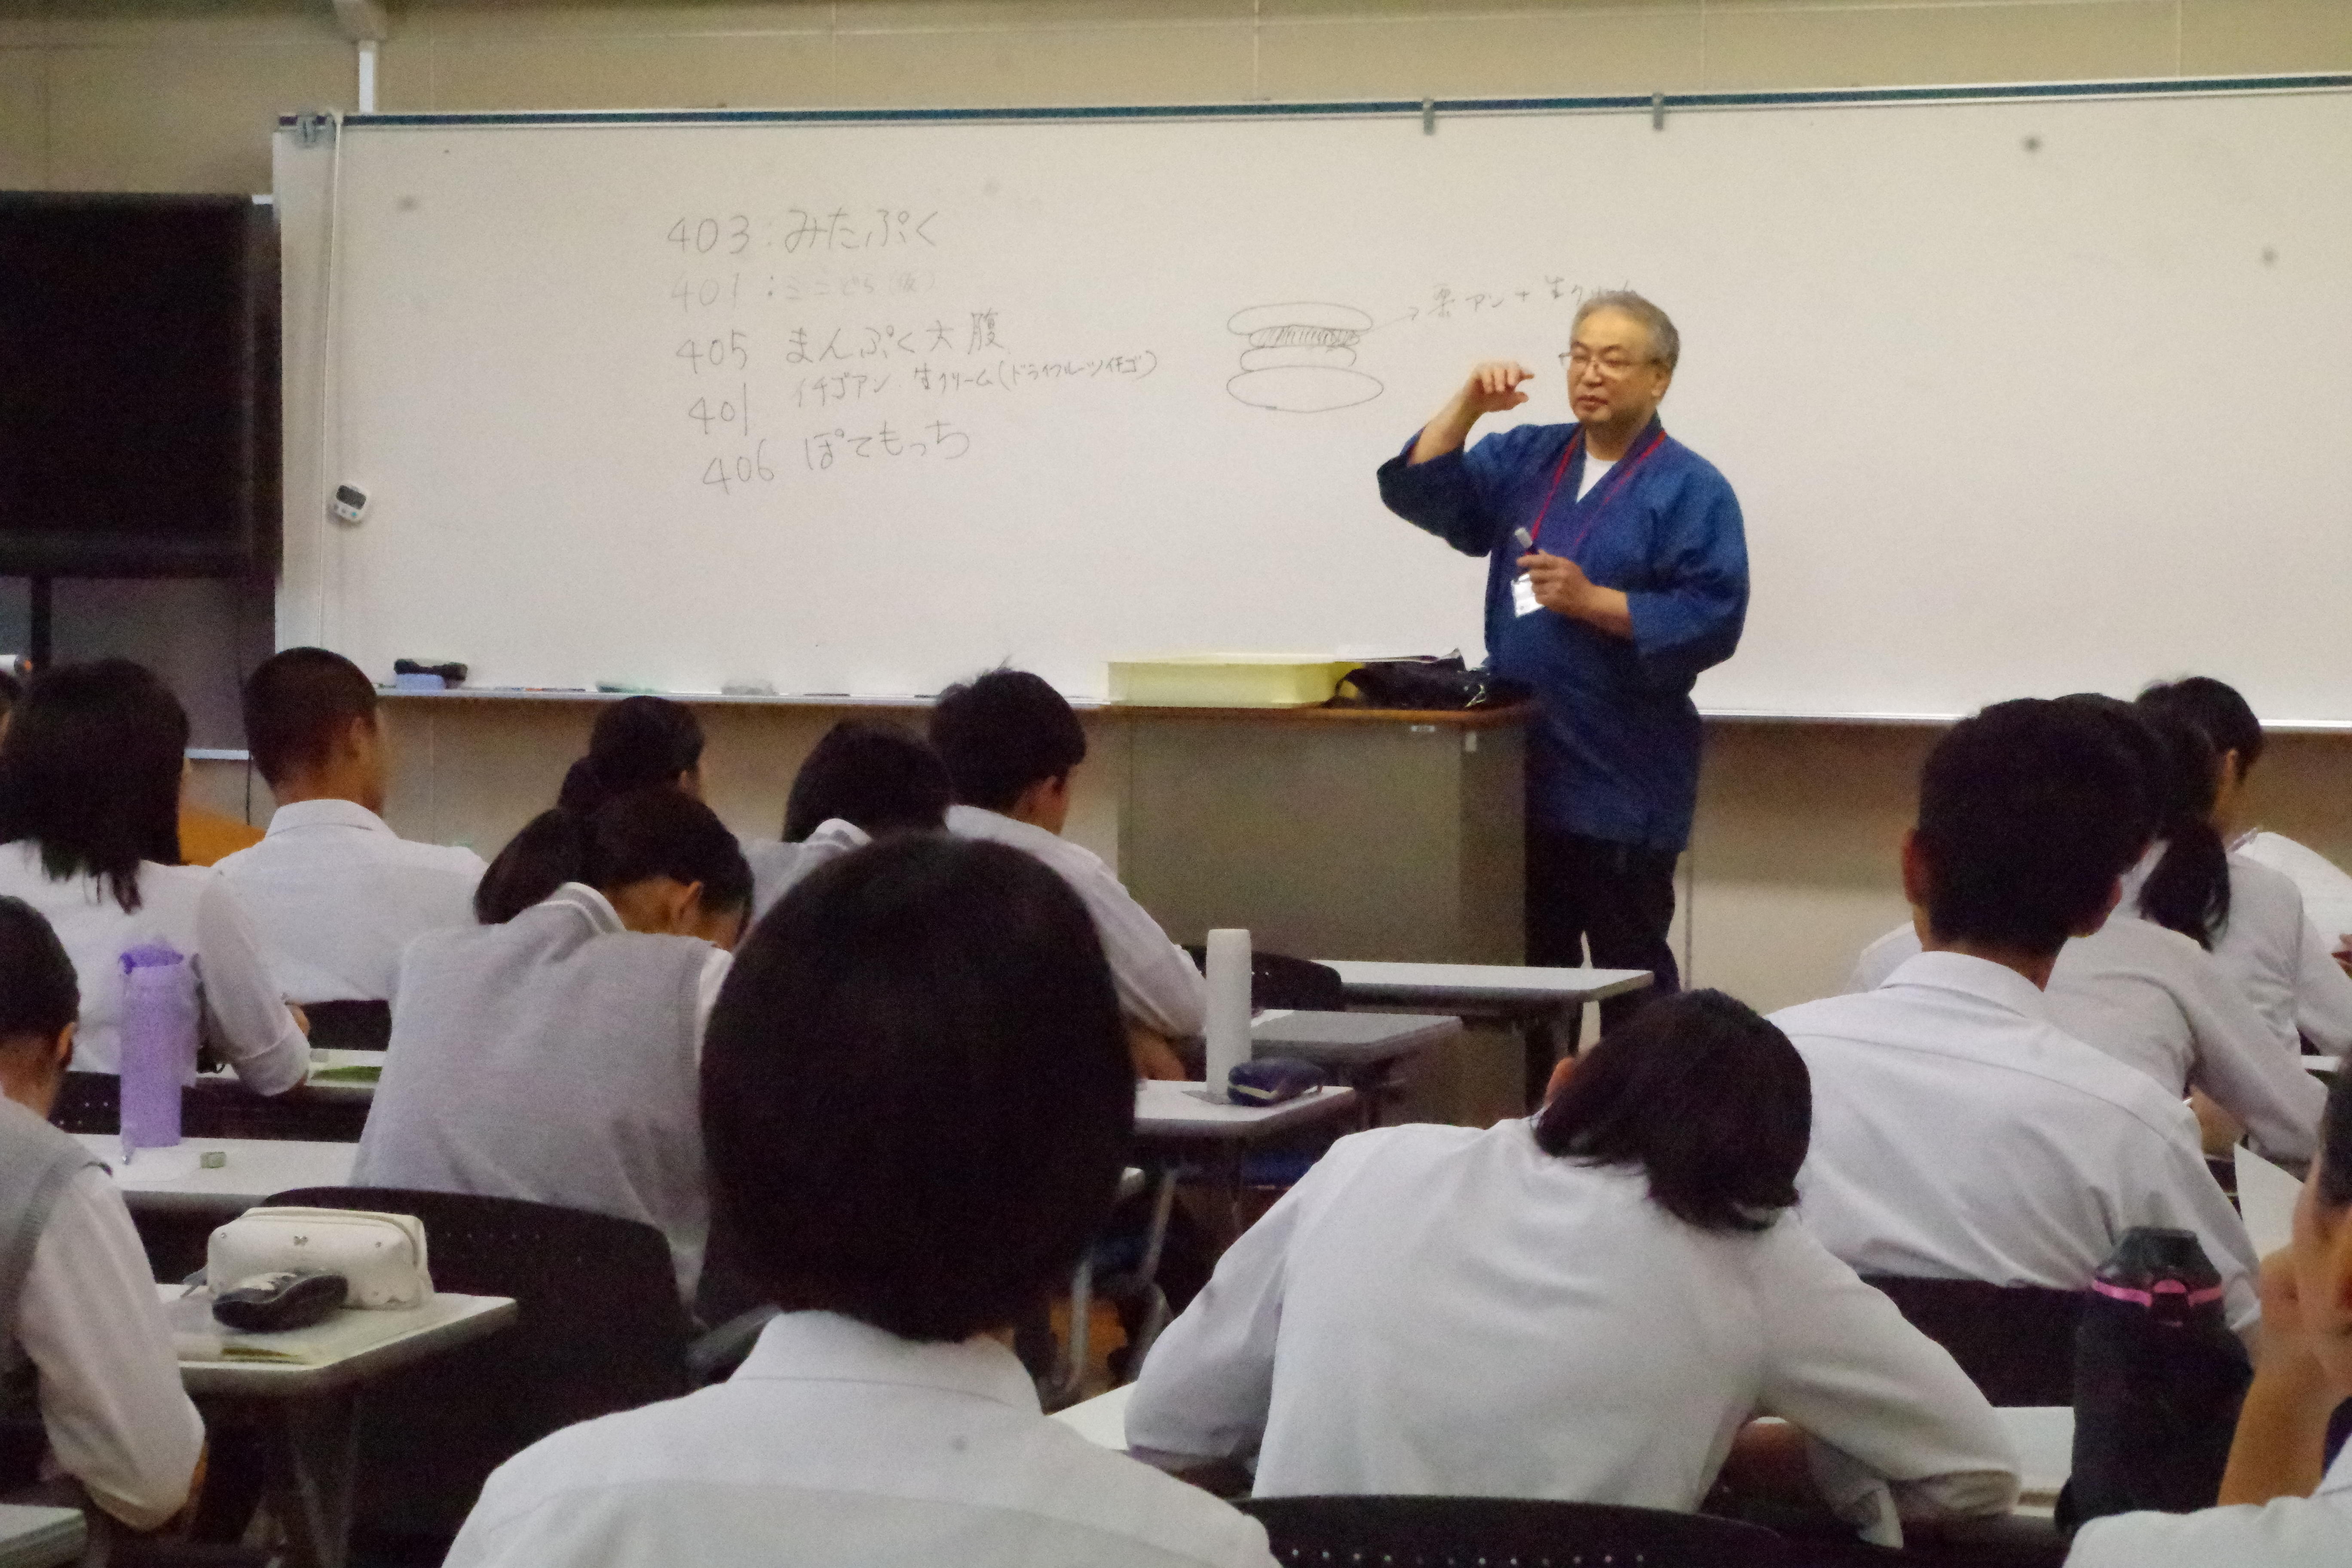 403:みたぷく
401:ミニどら(仮)
405 まんぷく大腹
401 イチゴアン.生クリーム(ドライフルーツイチゴ)
406 ぽてもっち
栗アン+生クリーム